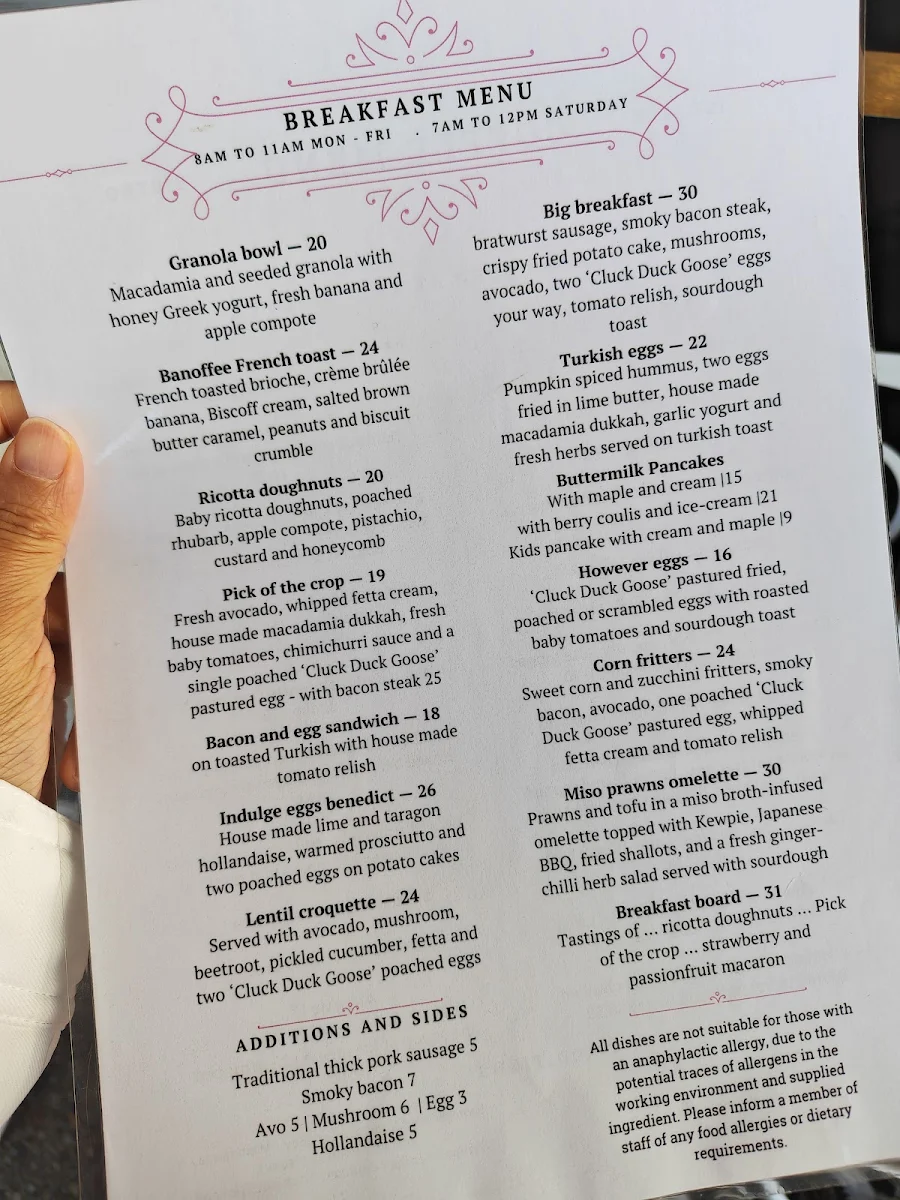 BREAKFAST MENU
8AM TO 11AM MON - FRI · 7AM TO 12PM SATURDAY
Granola bowl — 20
Macadamia and seeded granola with
honey Greek yogurt, fresh banana and
apple compote
Banoffee French toast — 24
French toasted brioche, crème brûlée
banana, Biscoff cream, salted brown
butter caramel, peanuts and biscuit
crumble
Ricotta doughnuts — 20
Baby ricotta doughnuts, poached
rhubarb, apple compote, pistachio,
custard and honeycomb
Pick of the crop — 19
Fresh avocado, whipped fetta cream,
house made macadamia dukkah, fresh
baby tomatoes, chimichurri sauce and a
single poached ‘Cluck Duck Goose’
pastured egg - with bacon steak 25
Bacon and egg sandwich — 18
on toasted Turkish with house made
tomato relish
Indulge eggs benedict — 26
House made lime and taragon
hollandaise, warmed prosciutto and
two poached eggs on potato cakes
Lentil croquette — 24
Served with avocado, mushroom,
beetroot, pickled cucumber, fetta and
two ‘Cluck Duck Goose’ poached eggs
ADDITIONS AND SIDES
Traditional thick pork sausage 5
Smoky bacon 7
Avo 5 | Mushroom 6 | Egg 3
Hollandaise 5
Big breakfast — 30
bratwurst sausage, smoky bacon steak,
crispy fried potato cake, mushrooms,
avocado, two ‘Cluck Duck Goose’ eggs
your way, tomato relish, sourdough
toast
Turkish eggs — 22
Pumpkin spiced hummus, two eggs
fried in lime butter, house made
macadamia dukkah, garlic yogurt and
fresh herbs served on turkish toast
Buttermilk Pancakes
With maple and cream |15
with berry coulis and ice-cream |21
Kids pancake with cream and maple |9
However eggs — 16
‘Cluck Duck Goose’ pastured fried,
poached or scrambled eggs with roasted
baby tomatoes and sourdough toast
Corn fritters — 24
Sweet corn and zucchini fritters, smoky
bacon, avocado, one poached ‘Cluck
Duck Goose’ pastured egg, whipped
fetta cream and tomato relish
Miso prawns omelette — 30
Prawns and tofu in a miso broth-infused
omelette topped with Kewpie, Japanese
BBQ, fried shallots, and a fresh ginger-
chilli herb salad served with sourdough
Breakfast board — 31
Tastings of ... ricotta doughnuts ... Pick
of the crop ... strawberry and
passionfruit macaron
All dishes are not suitable for those with
an anaphylactic allergy, due to the
potential traces of allergens in the
working environment and supplied
ingredient. Please inform a member of
staff of any food allergies or dietary
requirements.